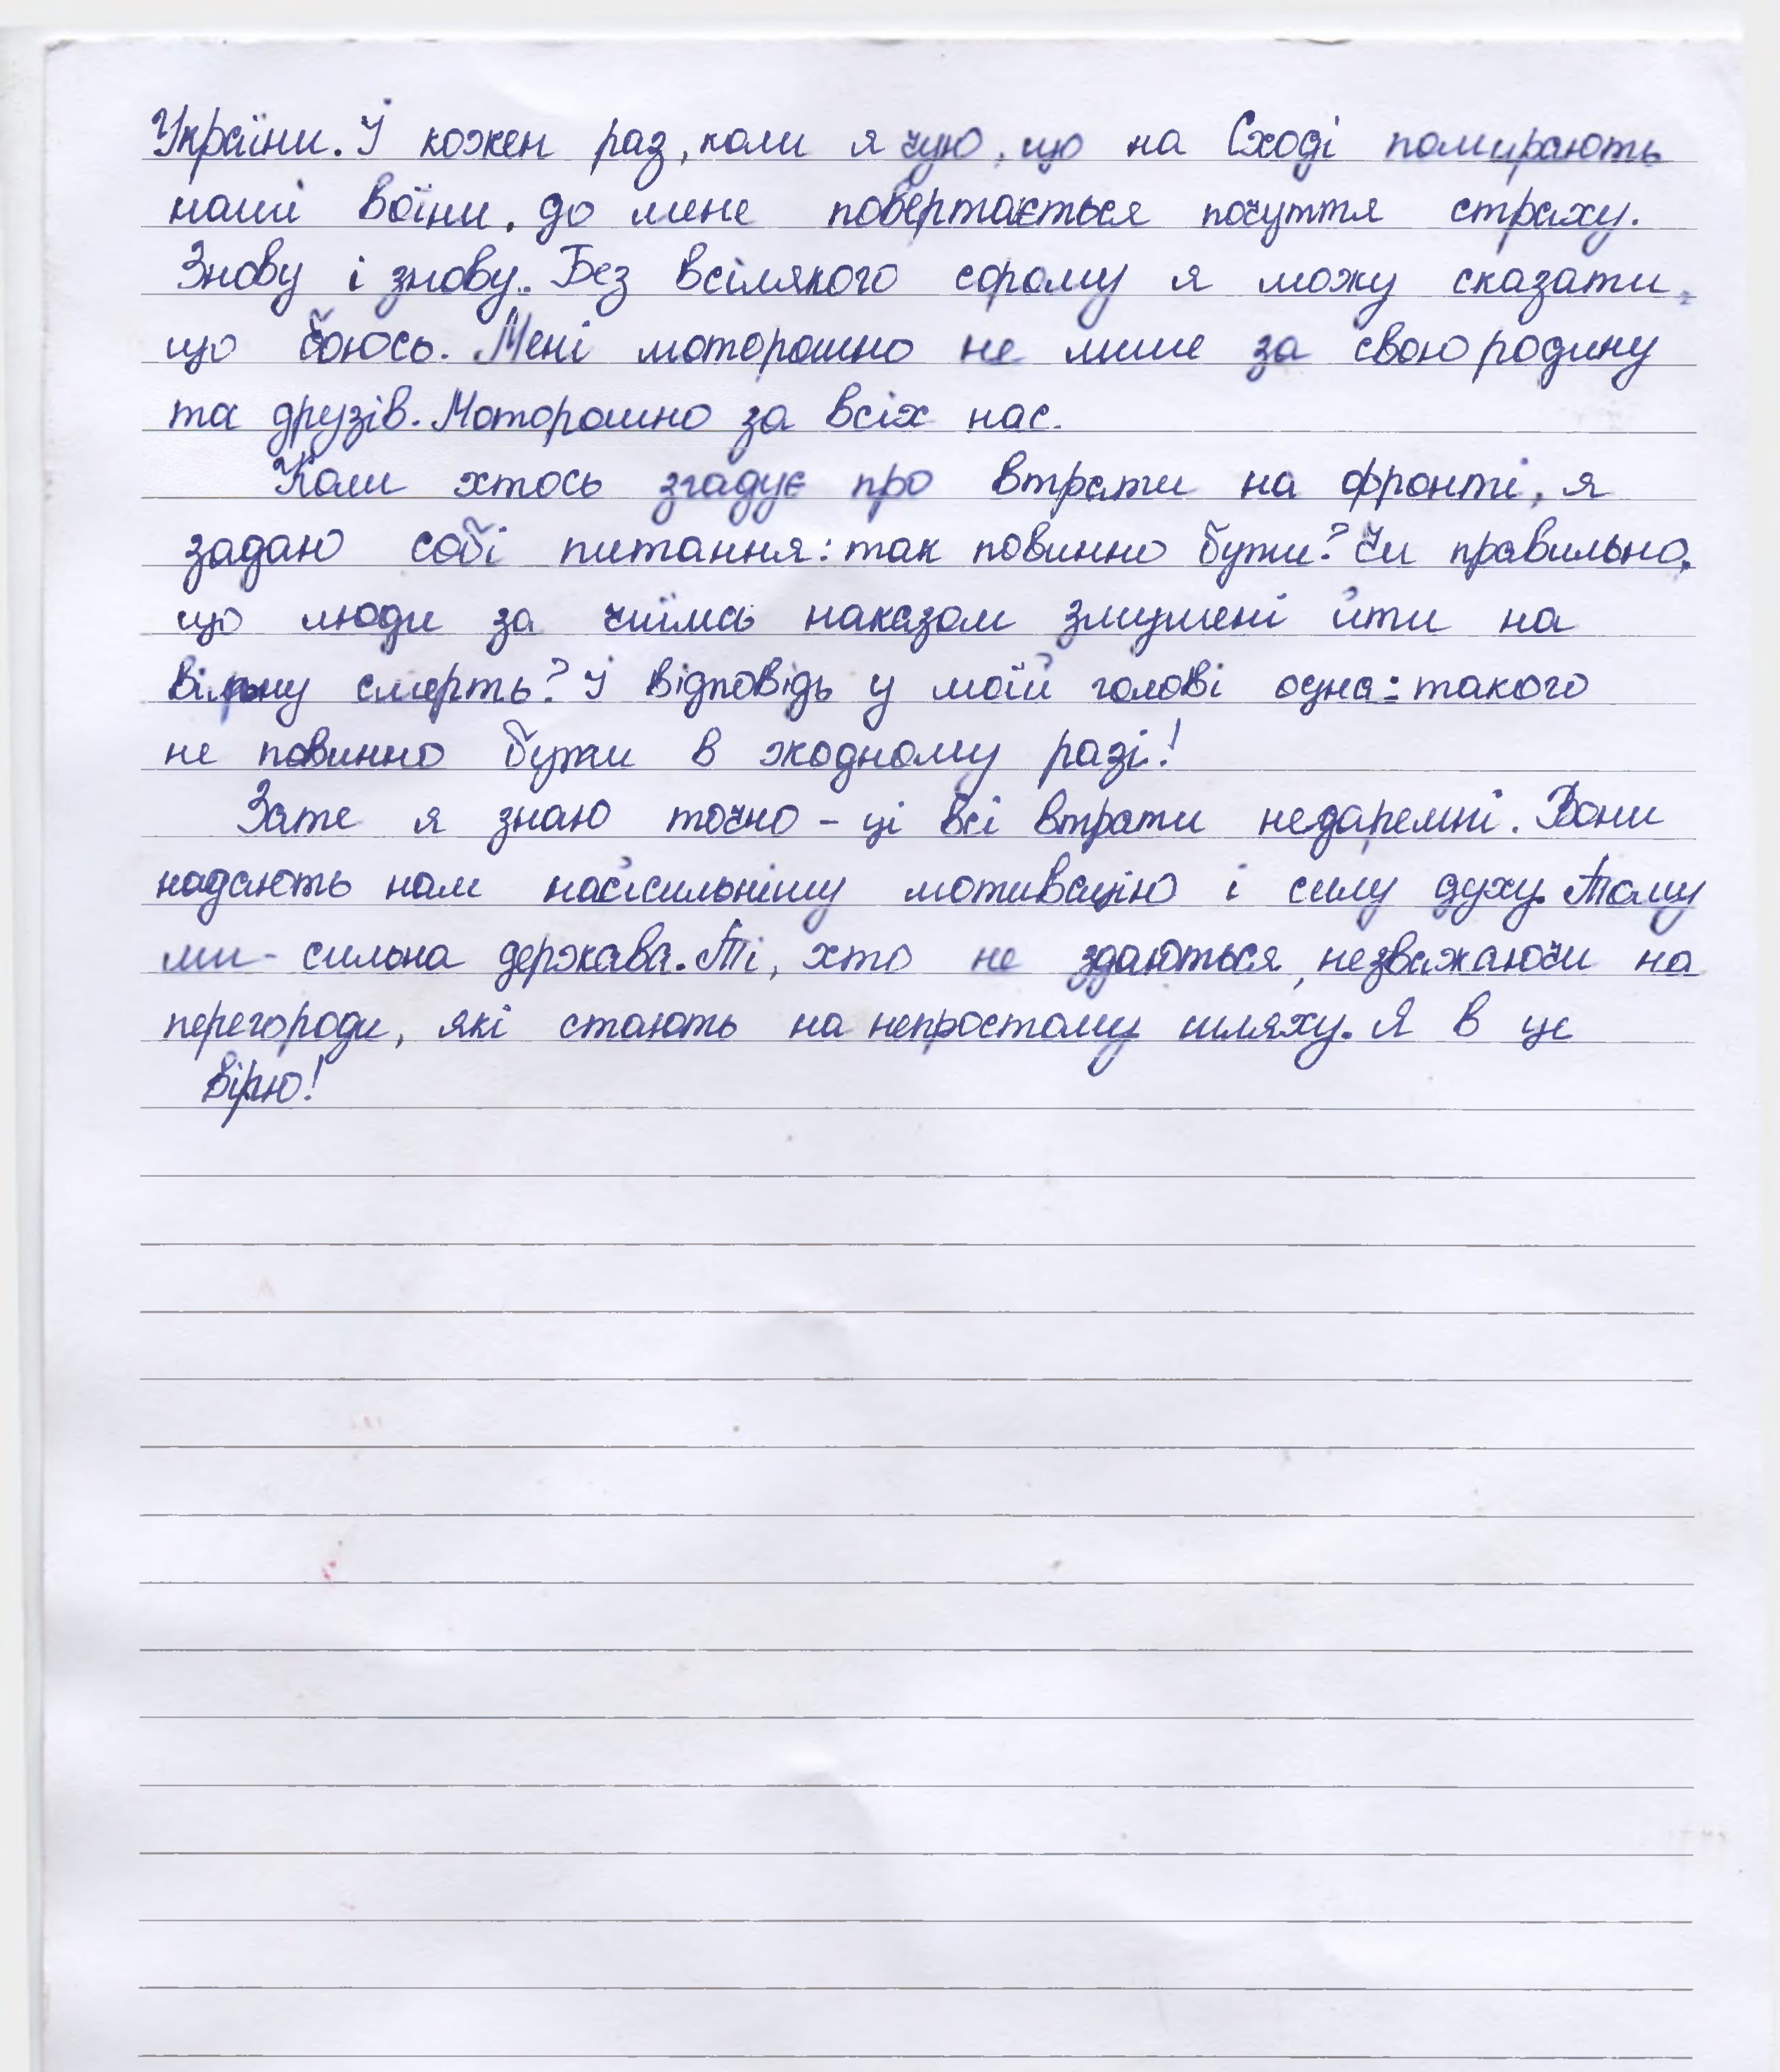 України. І кожен раз, коли я чую, що на Сході помирають
наші воїни, до мене повертається почуття страху.
Знову і знову.. Без всілякого сорому я можу сказати,
що боюсь. Мені моторошно не лише за свою родину
та друзів. Моторошно за всіх нас.
Коли хтось згадує про втрати на фронті, я
задаю собі питання: так повинно бути? Чи правильно,
що люди за чиїмсь наказом змушені йти на
смерть? І відповідь у моїй голові одна: такого
не повинно бути в жодному разі!
Зате я знаю точно - ці всі втрати недаремні. Вони
надають нам найсильнішу мотивацію і силу духу. Тому
ми - сильна держава. Ті, хто не здаються, незважаючи на
перегороди, які стають на непростому шляху. Я в це
вірю!